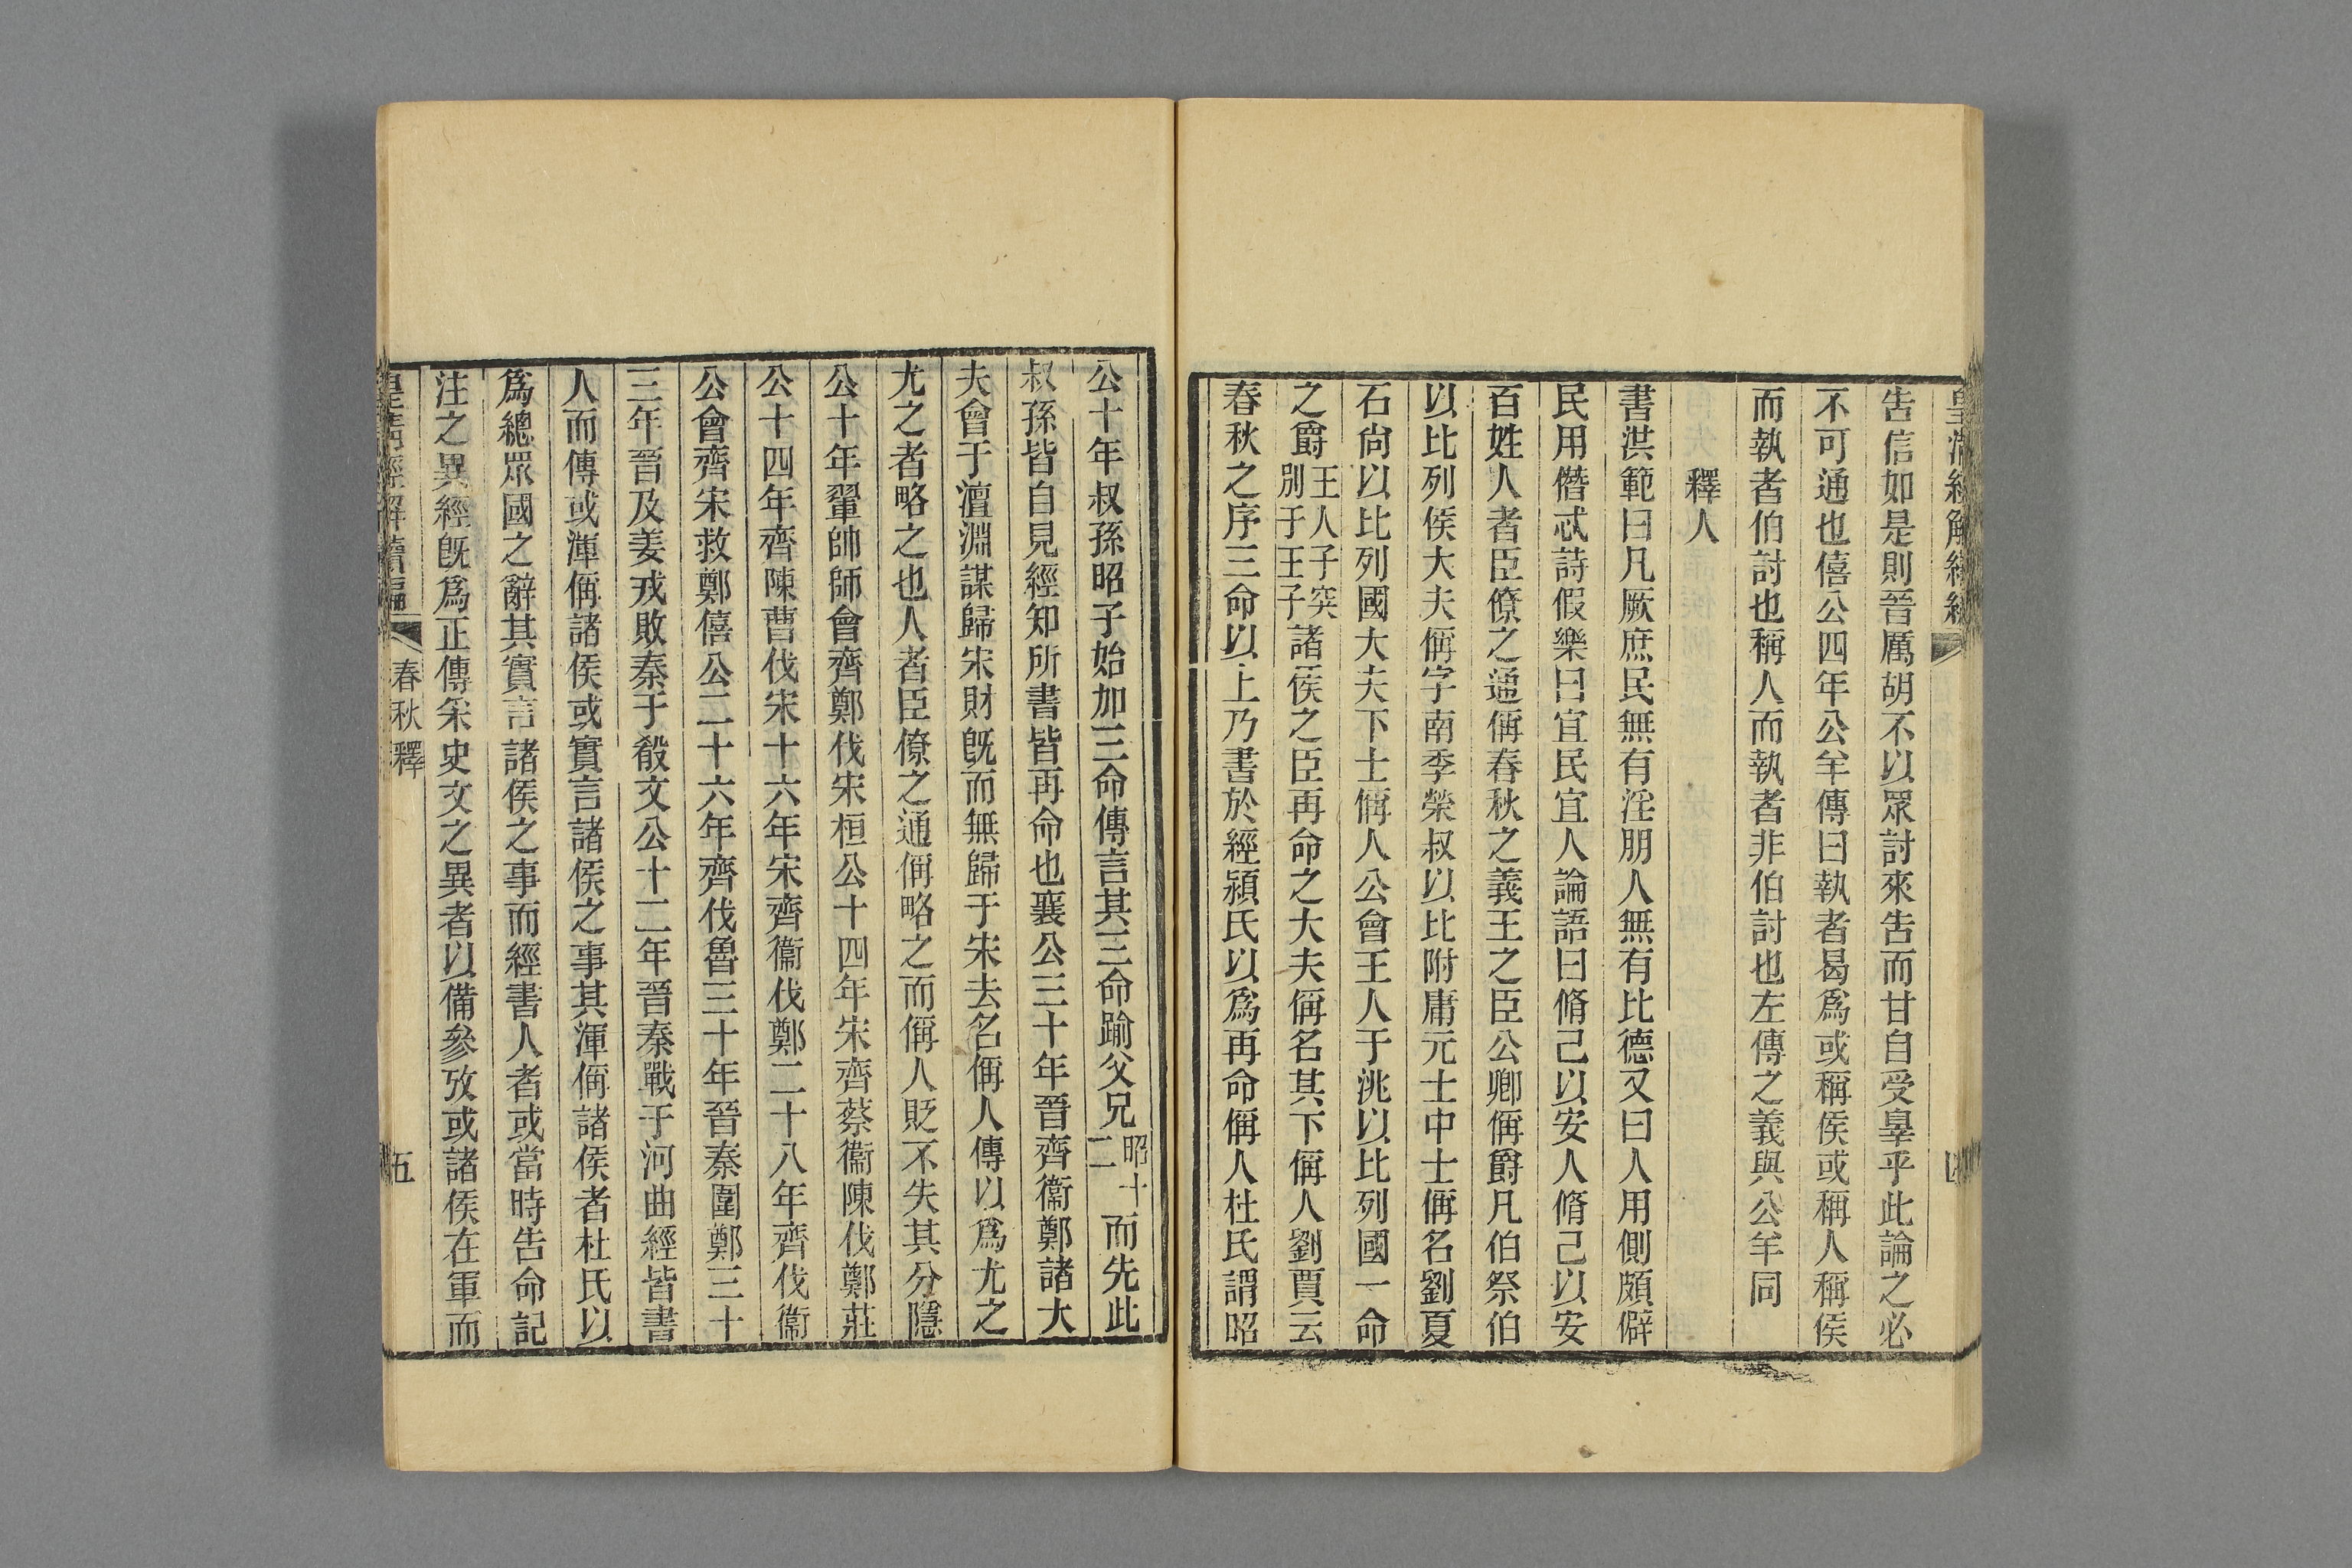 告信如是則晉厲胡不以眾討來告而甘自受辠乎此論之必
不可通也僖公四年公羊傳曰執者曷爲或稱侯或稱人稱侯
而執者伯討也稱人而執者非伯討也左傳之義與公羊同
釋人
書洪範曰凡厥庶民無有淫朋人無有比德又曰人用側頗僻
民用僭忒詩假樂曰宜民宜人論語曰脩己以安人脩己以安
百姓人者臣僚之通偁春秋之義王之臣公卿偁爵凡伯祭伯
以比列侯大夫偁字南季榮叔以比附庸元士中士偁名劉夏
石尙以比列國大夫下士偁人公會王人于洮以比列國一命
之爵王人子突別于王子諸侯之臣再命之大夫偁名其下偁人劉賈云
春秋之序三命以上乃書於經潁氏以爲再命偁人杜氏謂昭
公十年叔孫昭子始加三命傳言其三命踰父兄昭十二而先此
叔孫皆自見經知所書皆再命也襄公三十年晉齊衞鄭諸大
夫會于澶淵謀歸宋財旣而無歸于宋去名偁人傳以爲尤之
尤之者略之也人者臣僚之通偁略之而偁人貶不失其分隱
公十年翬帥師會齊鄭伐宋桓公十四年宋齊蔡衞陳伐鄭莊
公十四年齊陳曹伐宋十六年宋齊衞伐鄭二十八年齊伐衞
公會齊宋救鄭僖公二十六年齊伐魯三十年晉秦圍鄭三十
三年晉及姜戎敗秦于殽文公十二年晉秦戰于河曲經皆書
人而傳或渾偁諸侯或實言諸侯之事其渾偁諸侯者杜氏以
爲總眾國之辭其實言諸侯之事而經書人者或當時告命記
注之異經旣爲正傳采史文之異者以備參攷或諸侯在軍而
皇淸經解續編
春秋釋
五